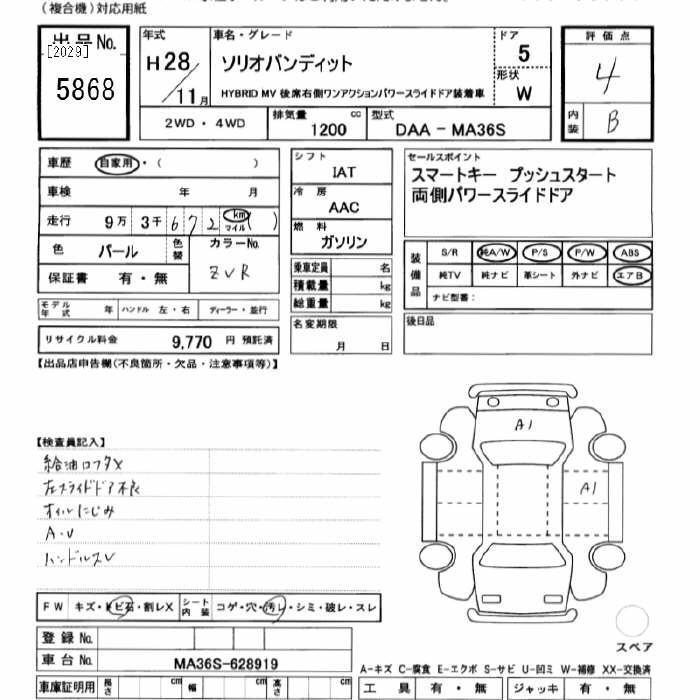 （複合機）対応用紙
出品No. [2029] 5868
年式 H28／11月
車名・グレード
ソリオバンディット
HYBRID MV 後席右側ワンアクションパワースライドドア装着車
ドア 5
形状 W
評価点 4
内装 B
2WD・4WD
排気量 1200 cc
型式 DAA－MA36S
車歴 自家用・（ ）
車検 年 月
走行 9万 3千 6 7 2 km マイル ( )
色 パール 色替
カラーNo. ZVR
保証書 有・無
モデル年式 年 ハンドル 左・右 ディーラー・並行
リサイクル料金 9,770 円 預託済
シフト IAT
冷房 AAC
燃料 ガソリン
乗車定員 名
積載量 kg
総重量 kg
名変期限 月 日
セールスポイント
スマートキー プッシュスタート
両側パワースライドドア
装備品
S/R 純A/W P/S P/W ABS
純TV 純ナビ 革シート 外ナビ エアB
ナビ型番：
後日品
【出品店申告欄（不良箇所・欠品・注意事項等）】
【検査員記入】
給油口フタX
左スライドドア不良
オイルにじみ
A・U
ハンドルスレ
A1
A1
スペア
FW キズ・トビ石・割レX シート内装 コゲ・穴・汚レ・シミ・破レ・スレ
登録No.
車台No. MA36S-628919
車庫証明用 長さ cm 幅 cm 高さ cm
A-キズ C-腐食 E-エクボ S-サビ U-凹ミ W-補修 XX-交換済
工具 有・無 ジャッキ 有・無